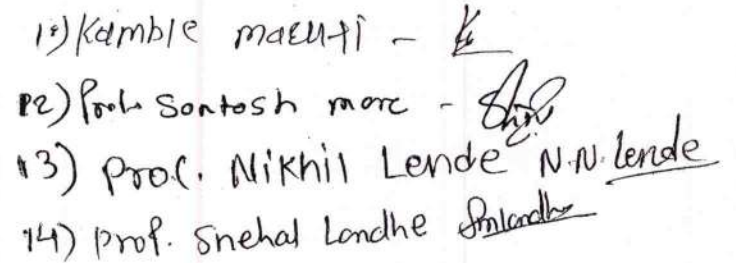 11) Kamble maruti -
12) Prof. Santosh more -
13) Prof. Nikhil Lende N.N. Lende
14) prof. Snehal Landhe